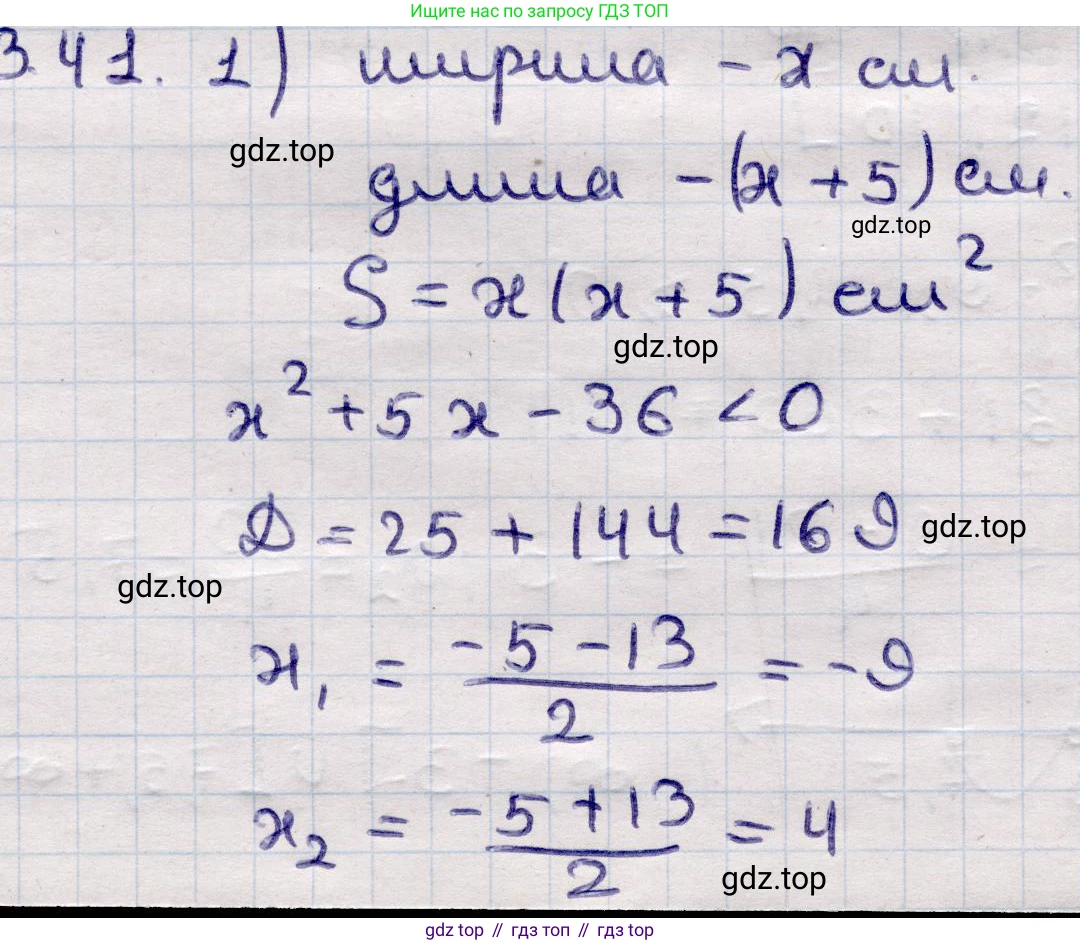 Ищите нас по запросу ГДЗ ТОП
3.41. 1) ширина - x см.
gdz.top
длина - (x + 5) см.
gdz.top
S = x(x + 5) см²
gdz.top
x² + 5x - 36 < 0
D = 25 + 144 = 169 gdz.top
gdz.top
x₁ = (-5 - 13)/2 = -9
x₂ = (-5 + 13)/2 = 4
gdz.top
gdz top // гдз топ // gdz top